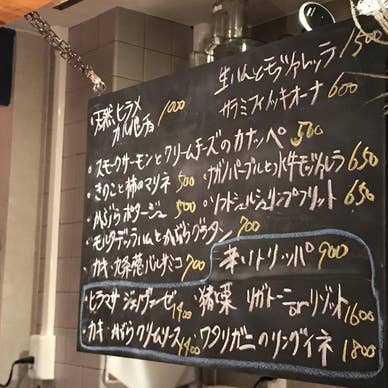 天然ヒラメ
カルパッチョ 1000
生ハムとモッツァレッラ 1500
サラミフィノッキオーナ 600
・スモークサーモンとクリームチーズのカナッペ 500
・きのこと柿のマリネ 500
・ナガノパープルと水牛モッツァレラ 650
・かぶらポタージュ 500
・ソフトシェルシュリンプフリット 650
・モルタデッラハムとかぶらグラタン 700
・カキ・九条葱バルサミコ 700
辛いトリッパ 900
・ヒラマサ ジェノヴェーゼ 1400
・猪と栗 リガトーニorリゾット 1600
・カキ・かぶらクリームソース 1400
・ワタリガニのリングイネ 1800